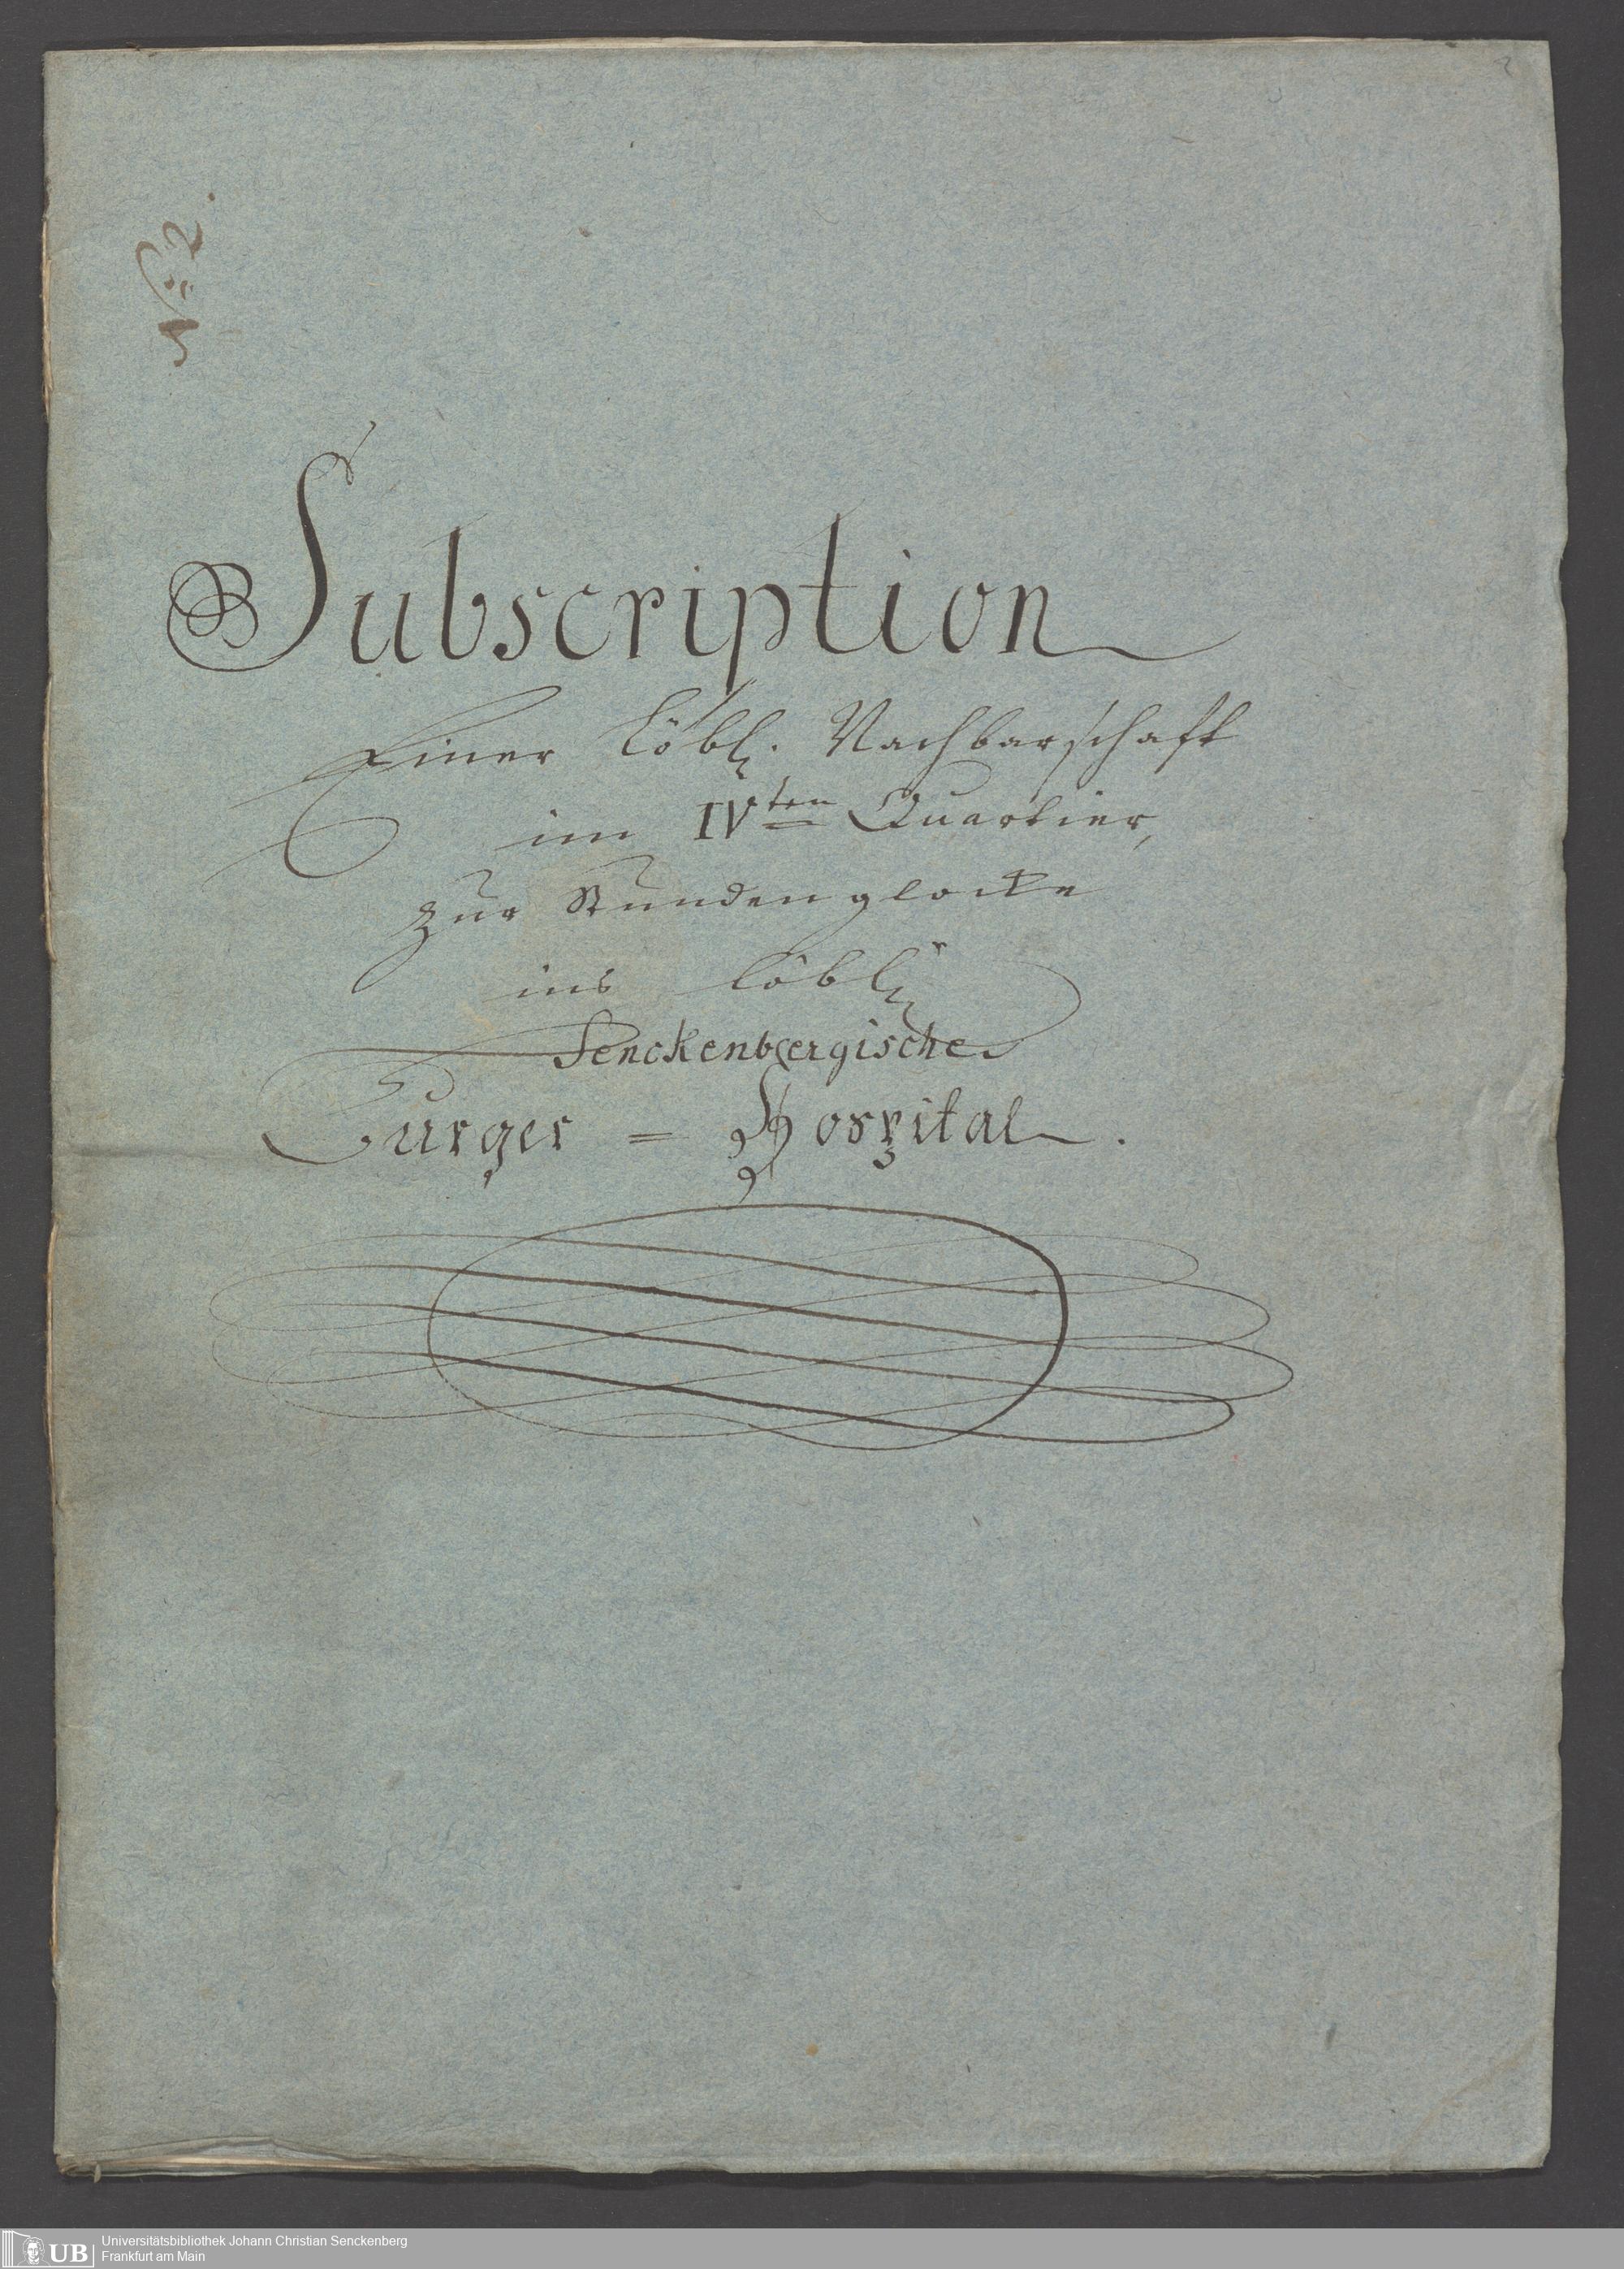 2
No: 2.
Subscription
Einer Löbl. Nachbarschaft
im IVten Quartier,
zur Stundenglocke
ins löbl.
Senckenbergische
Burger = Hospital.
UB
Universitätsbibliothek Johann Christian Senckenberg
Frankfurt am Main